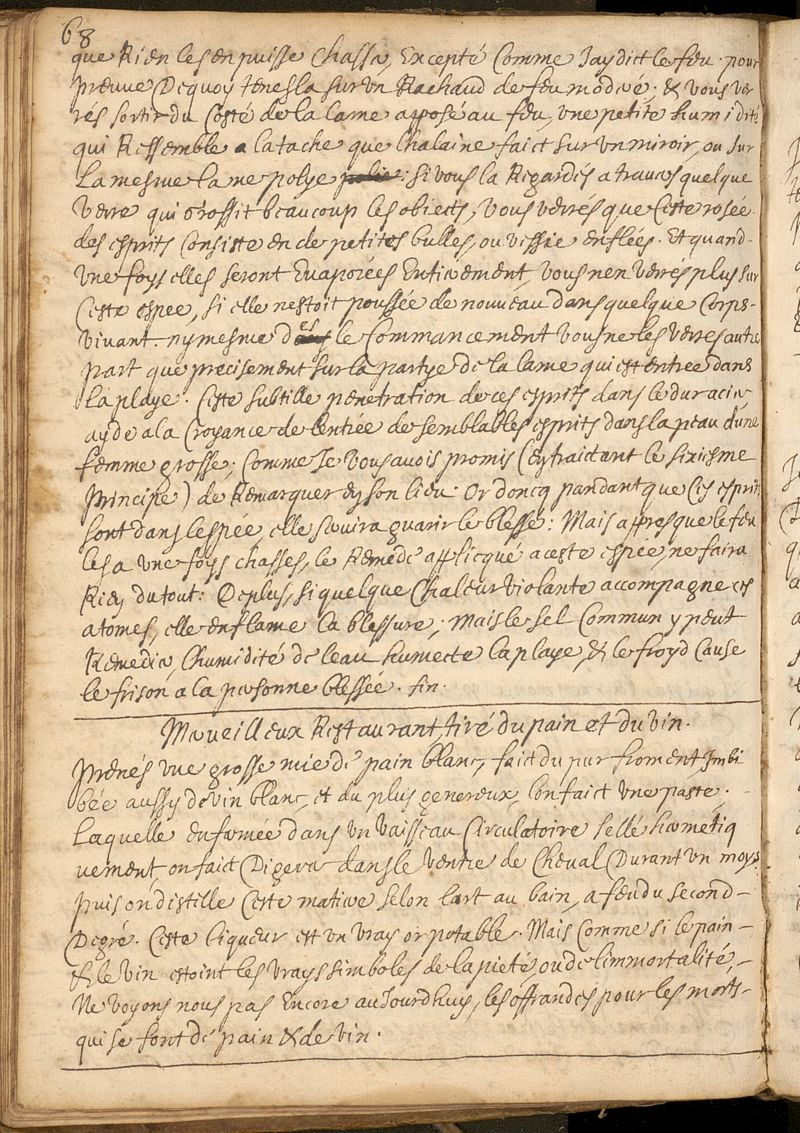 68
que Rien les en puisse Chasser, Excepté Comme Jay dict le feu. pour
preuve Dequoy tenes la sur un Rachaud de feu moderé; & vous ver
rés sortir du Costé de la lame apposé au feu, une petite humidité
qui Ressemble a la tache que l'halaine faict sur un miroir, ou sur
La mesme lame polye polie: si vous la Regardés a travers quelque
Verre qui grossit beaucoup les obiects, vous verrés que Ceste rosée
des esprits Consiste en de petites bulles, ou vissie enflées. Et quand
une foys elles seront Evaporées Entierement, vous nen verrés plus sur
Ceste espee, si elle nestoit poussée de nouveau dans quelque Corps
vivant. ny mesme des le Commancement vous ne les verres autre
part que precisement sur la partye de la lame qui est entree dans
la playe. Ceste subtille penetration de ces esprits dans le dur acier
ayde a la Croyance de lentrée de semblables esprits dans la peau d'une
femme grosse; Comme Je vous avois promis (Eytraictant le sixiesme
Principe) de Remarquer ey son lieu. Or doncq pandant que Ces esprits
sont dans lespée, elle servira guarir le blessé: Mais apres que le feu
les a une foys chasses, le Remede applicqué a ceste espee, ne faira
Riey du tout: Deplus, si quelque Chaleur violante accompagne ces
atomes, elle enflame la blessure; Mais le sel Commun y peut
Remedier, lhumidité de leau humecte la playe, & le froyd Cause
le frison a la personne blessée. fin.
Merveilleux Restaurant, tiré du pain et du vin.
Prenés une grosse mie de pain blanc, faict du pur froment Imbi
bée aussy de vin blanc, et du plus genereux, lon faict une paste.
Laquelle enfermée dans un vaisseau Circulatoire sellé hermetiq
uement, on faict Digerer dans le ventre de Cheval Durant un moys.
puis on distille Ceste matiere selon lart au bain, a feu du second
Degré. Ceste liqueur est un vray or potable. Mais Comme si le pain
& le vin estoint les vrays simboles de la pieté ou de limmortalité,
Ne voyons nous pas Encore aujourdhuy, les offrandes pour les morts
qui se font de pain & de vin.